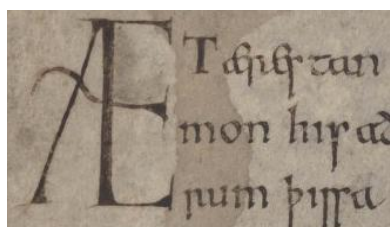 ÆT ærestan
mon his að
rum þissa